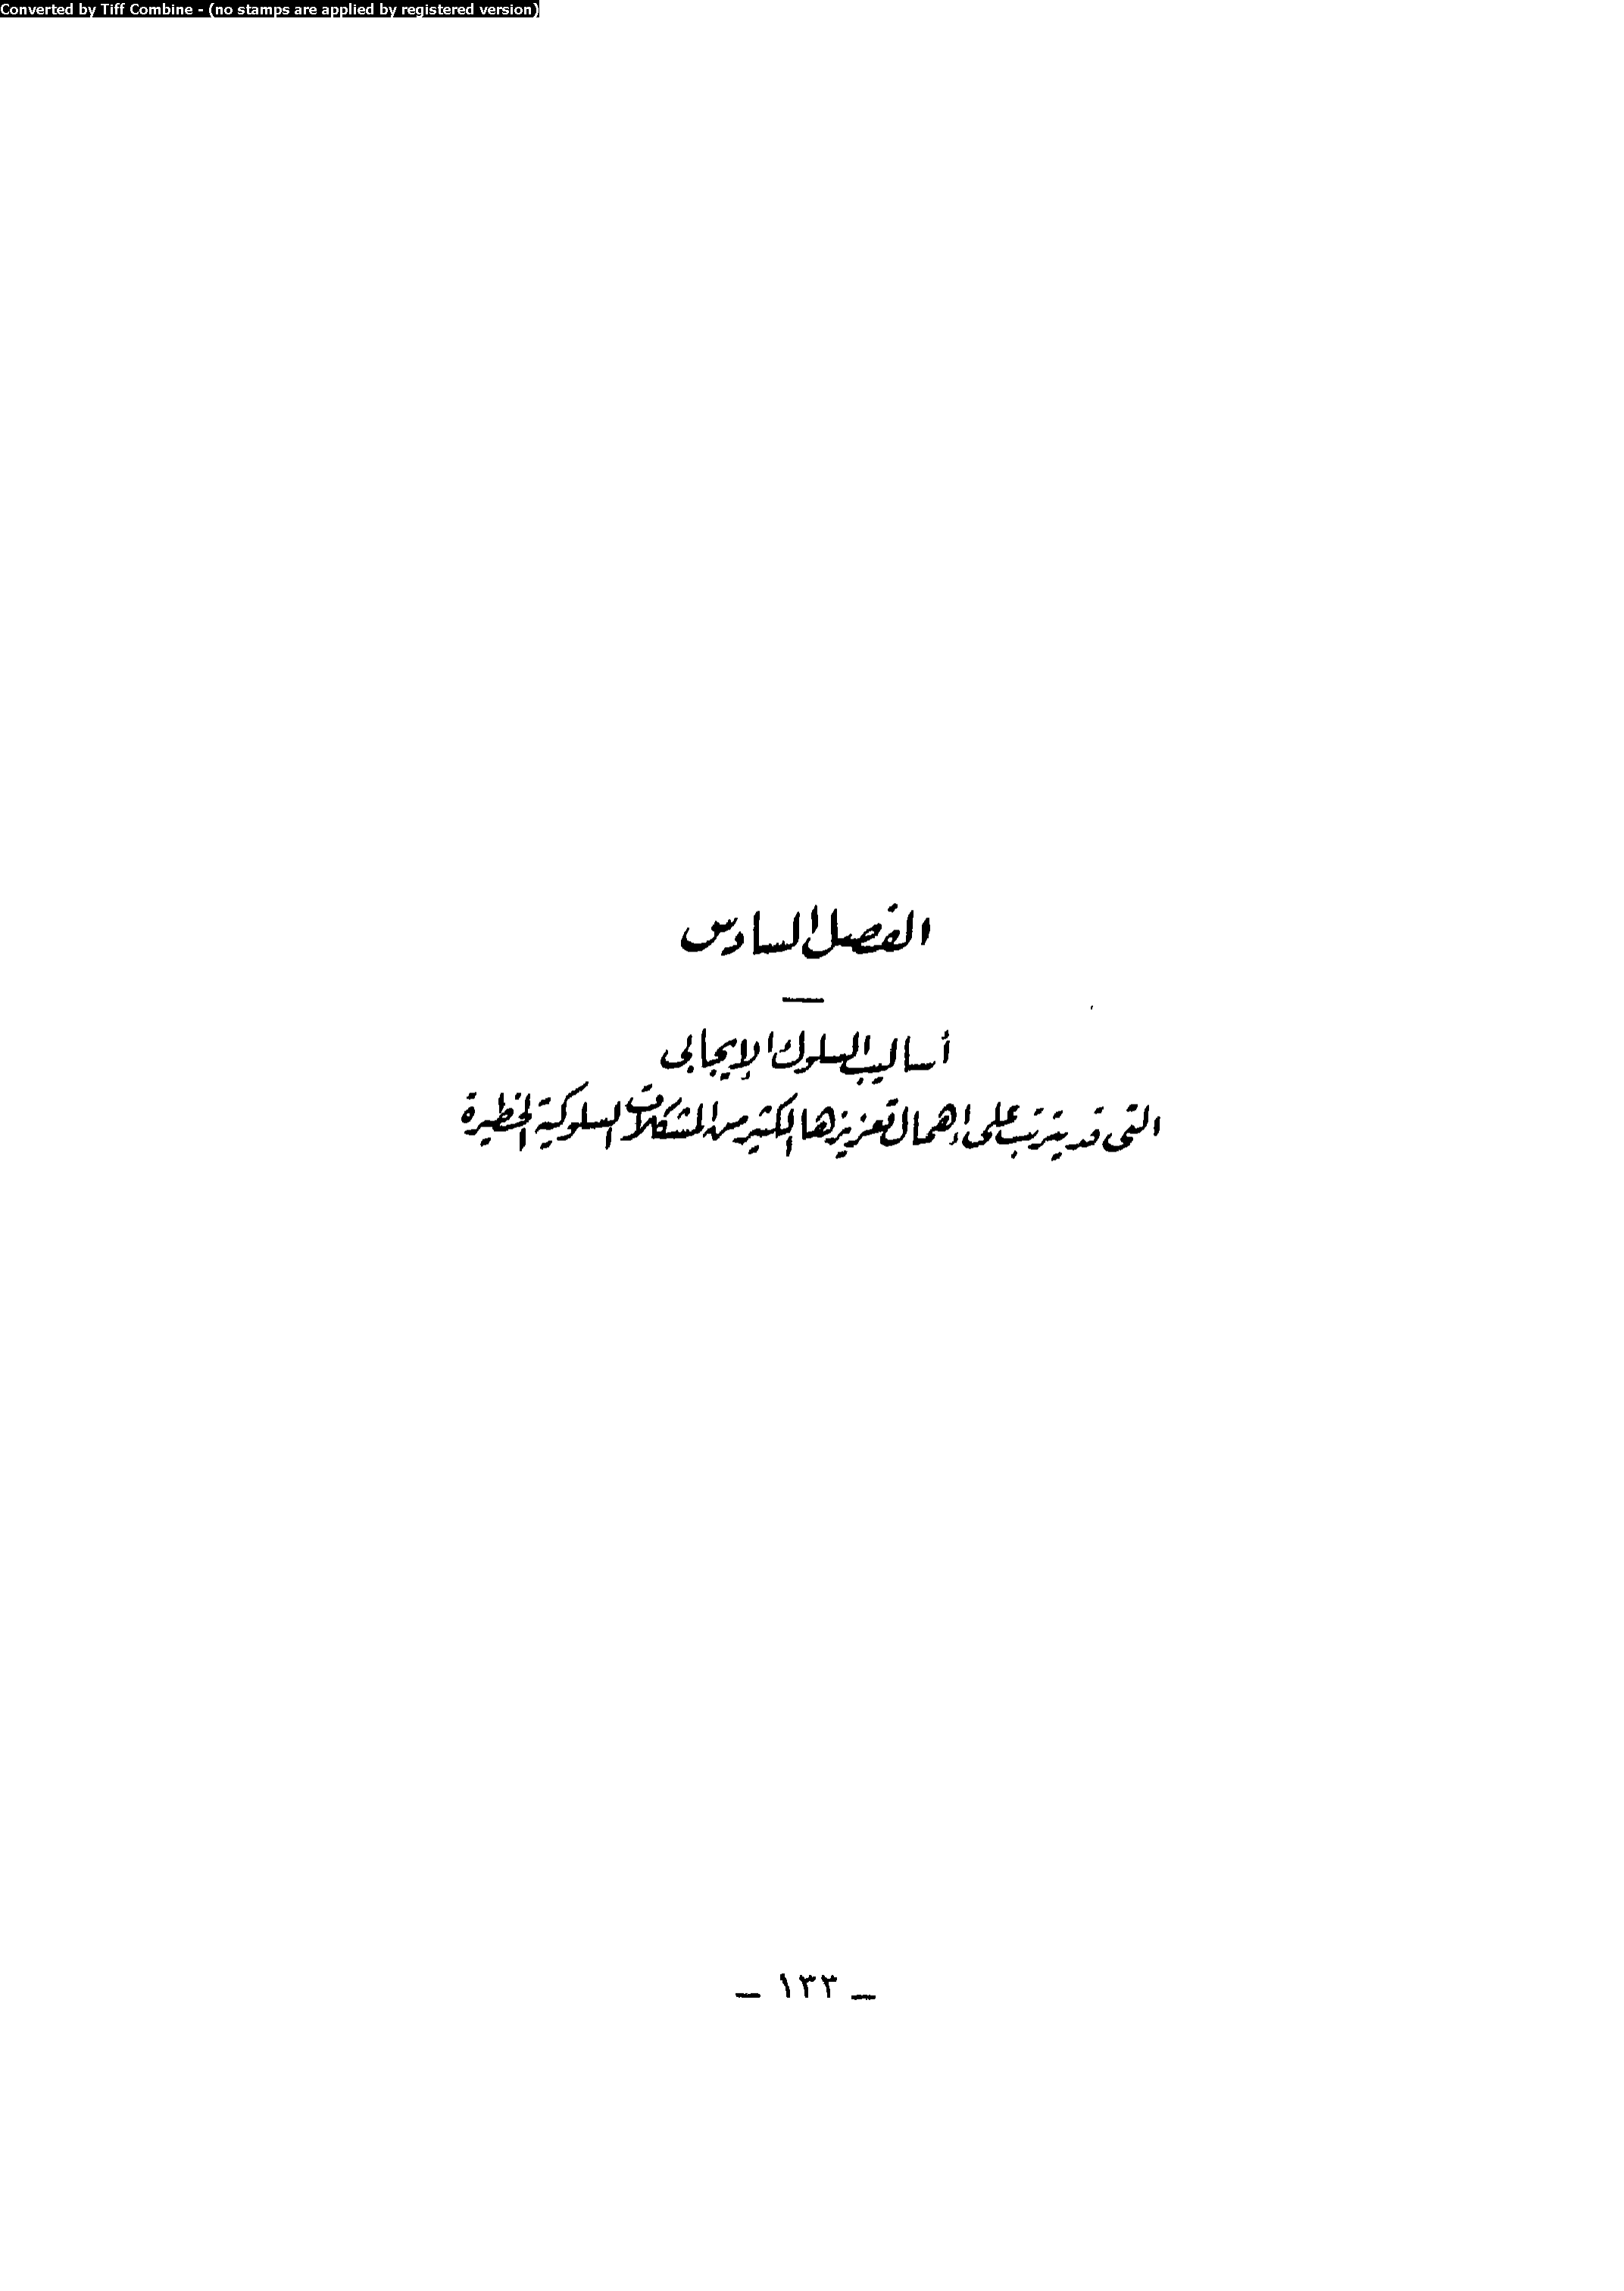 Converted by Tiff Combine - (no stamps are applied by registered version)
الفصل السادس
أساليب السلوك الإيجابى
التى قد يترتب على إهمال تعزيزها الكثير من المشكلات السلوكية الخطيرة
ـ ١٣٣ ـ